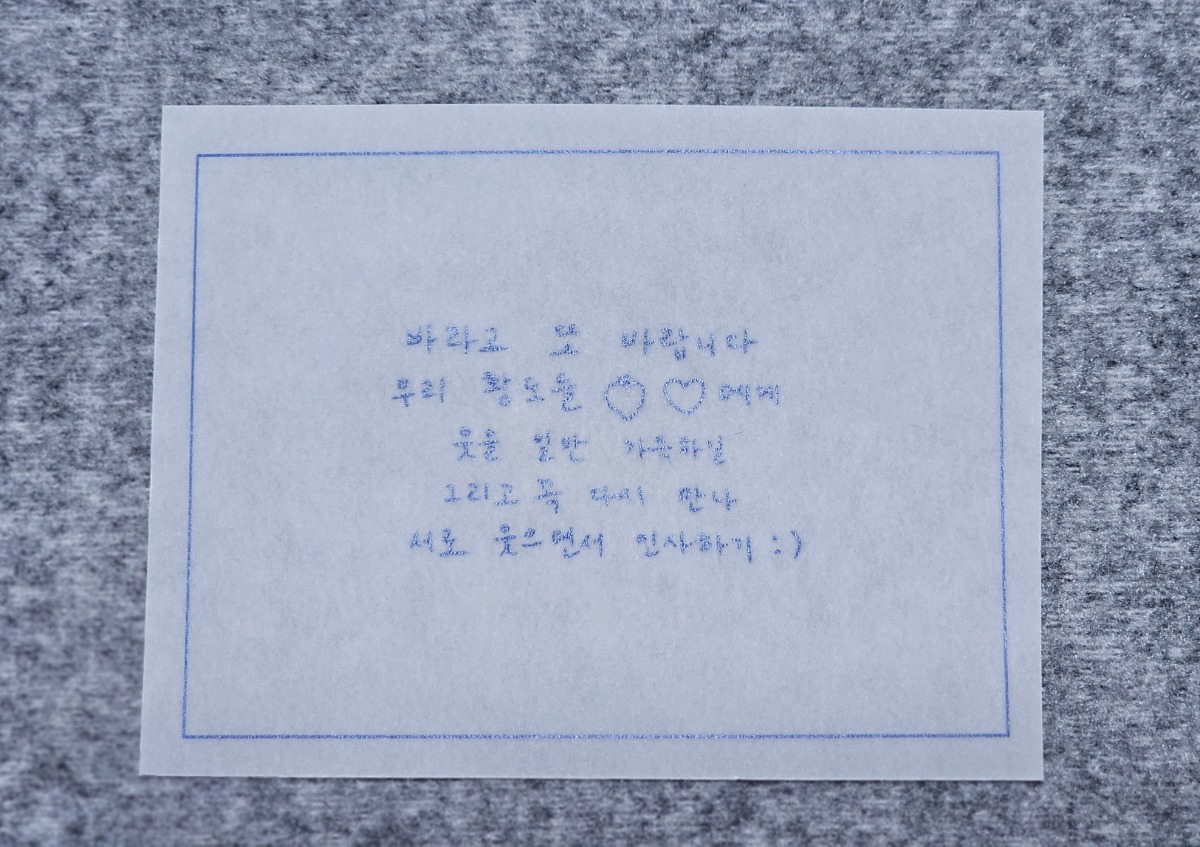 바라고 또 바랍니다
우리 황도들 ♡ ♡ 에게
웃을 일만 가득하길
그리고 꼭 다시 만나
서로 웃으면서 인사하기 :)